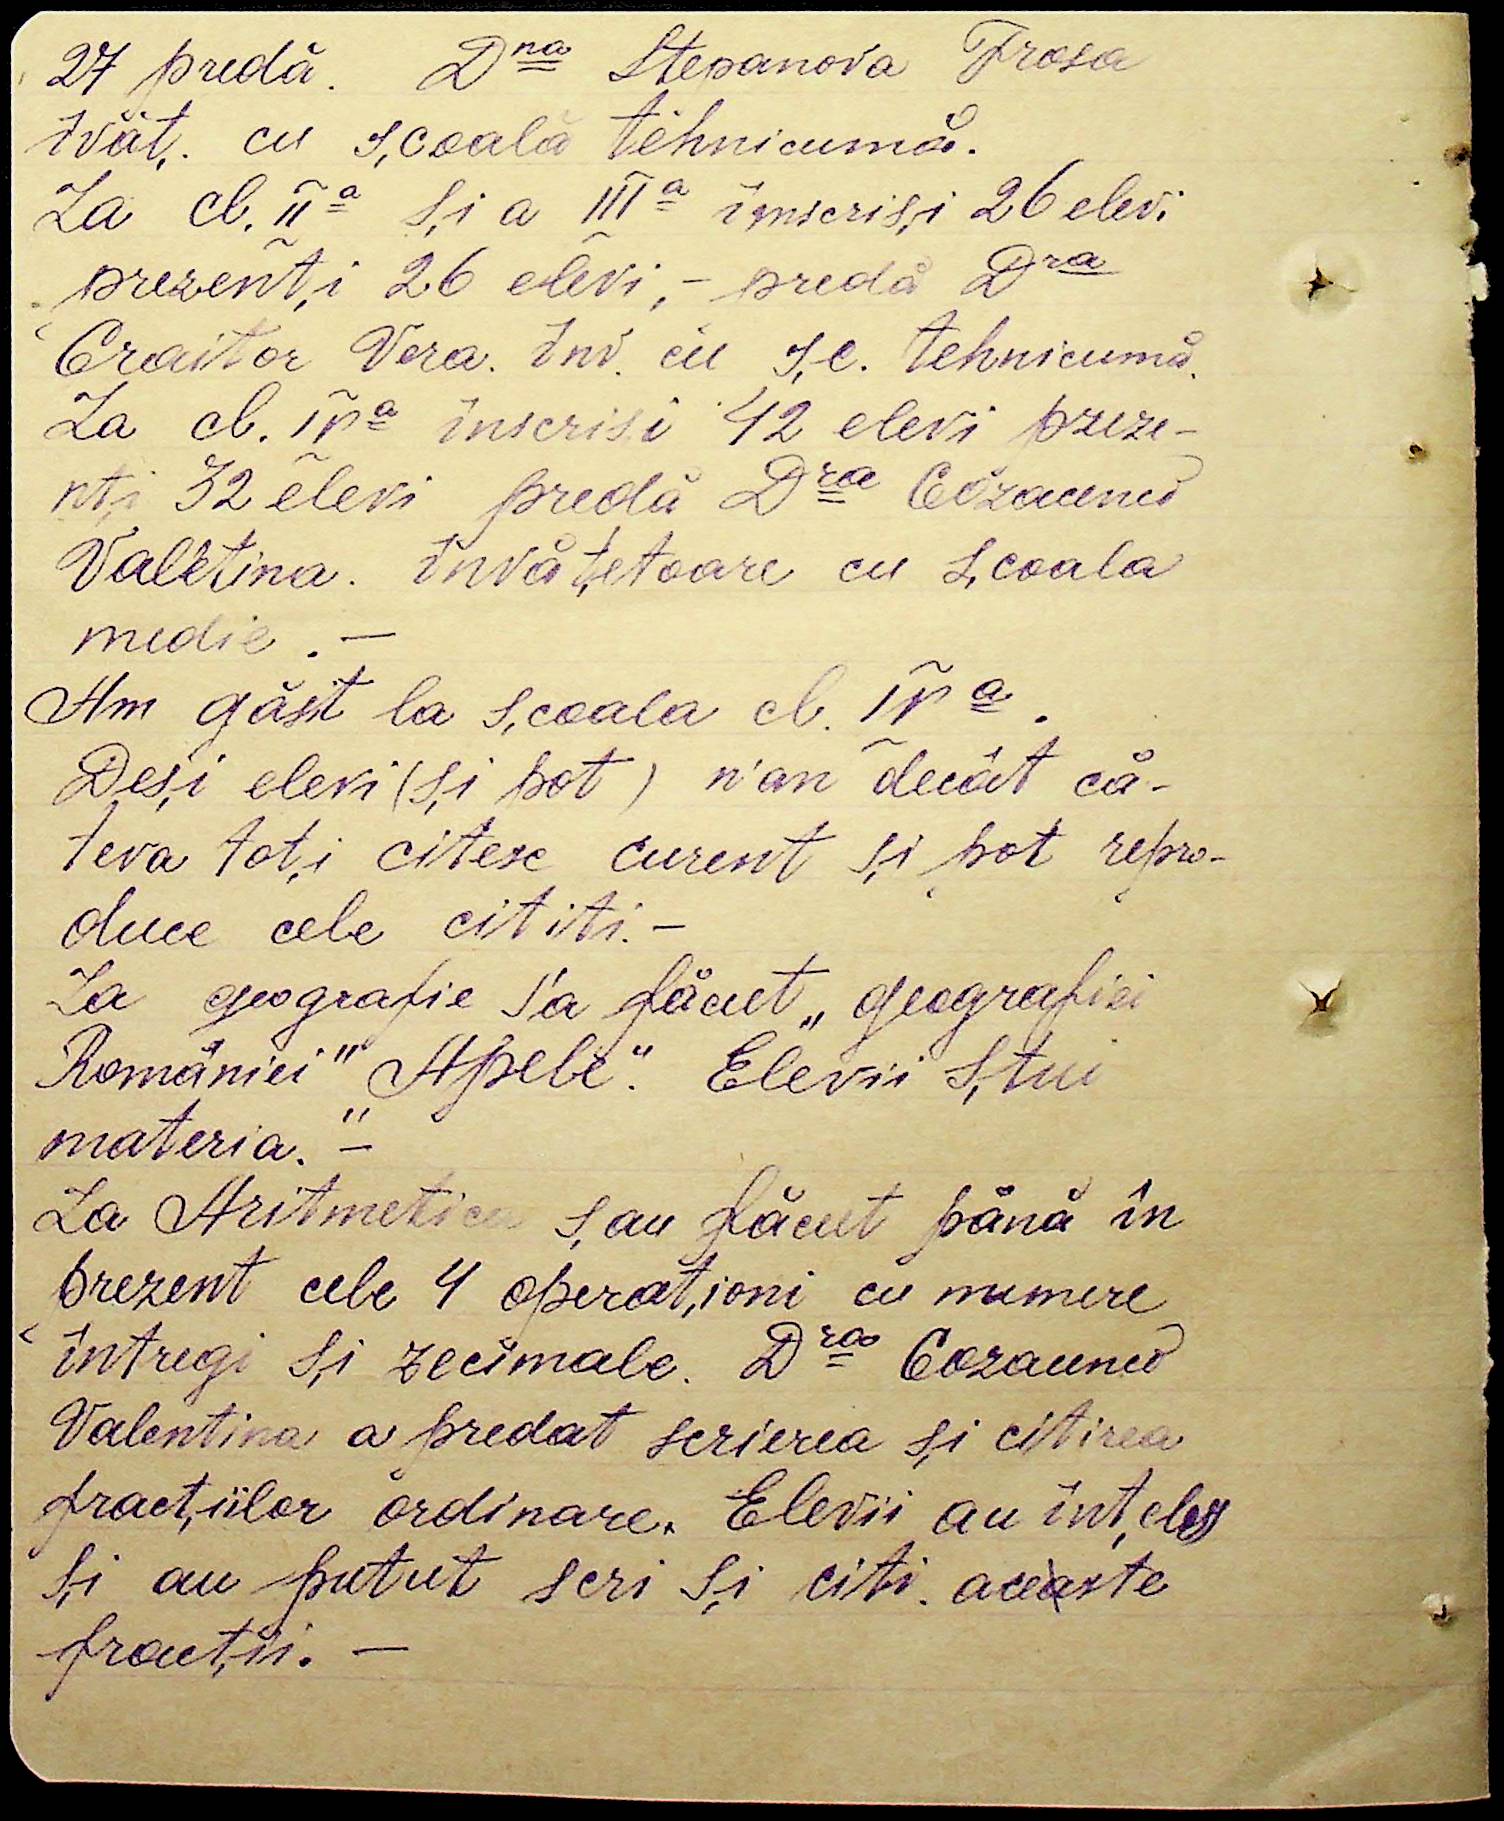 27 predă. Dna Stepanova Frosa
îvăț. cu școală tehnicumă.
La cl. IIa și a IIIa înscriși 26 elevi
prezenți 26 elevi, – predă Dra
Croitor Vera. Înv. cu șc. tehnicumă.
La cl. IVa înscrisi 42 elevi preze-
nți 32 elevi predă Dra
Valetina. Învățetoare cu școala
medie. –
Am găsit la școala cl. IVa.
Deși elevi (și pot) n'an decât câ-
teva toți citesc curent și pot repro-
duce cele cititi. –
La geografie s'a făcut „geografiei
României" "Apele". Elevii știu
materia." –
La Aritmetica s,au făcut până în
prezent cele 4 operaționi cu numere
întregi și zecimale. Dra
Valentina a predat scrierea și citirea
fracțiilor ordinare. Elevii au înțeles
și au putut scri și citi. aceaste
fracții. –